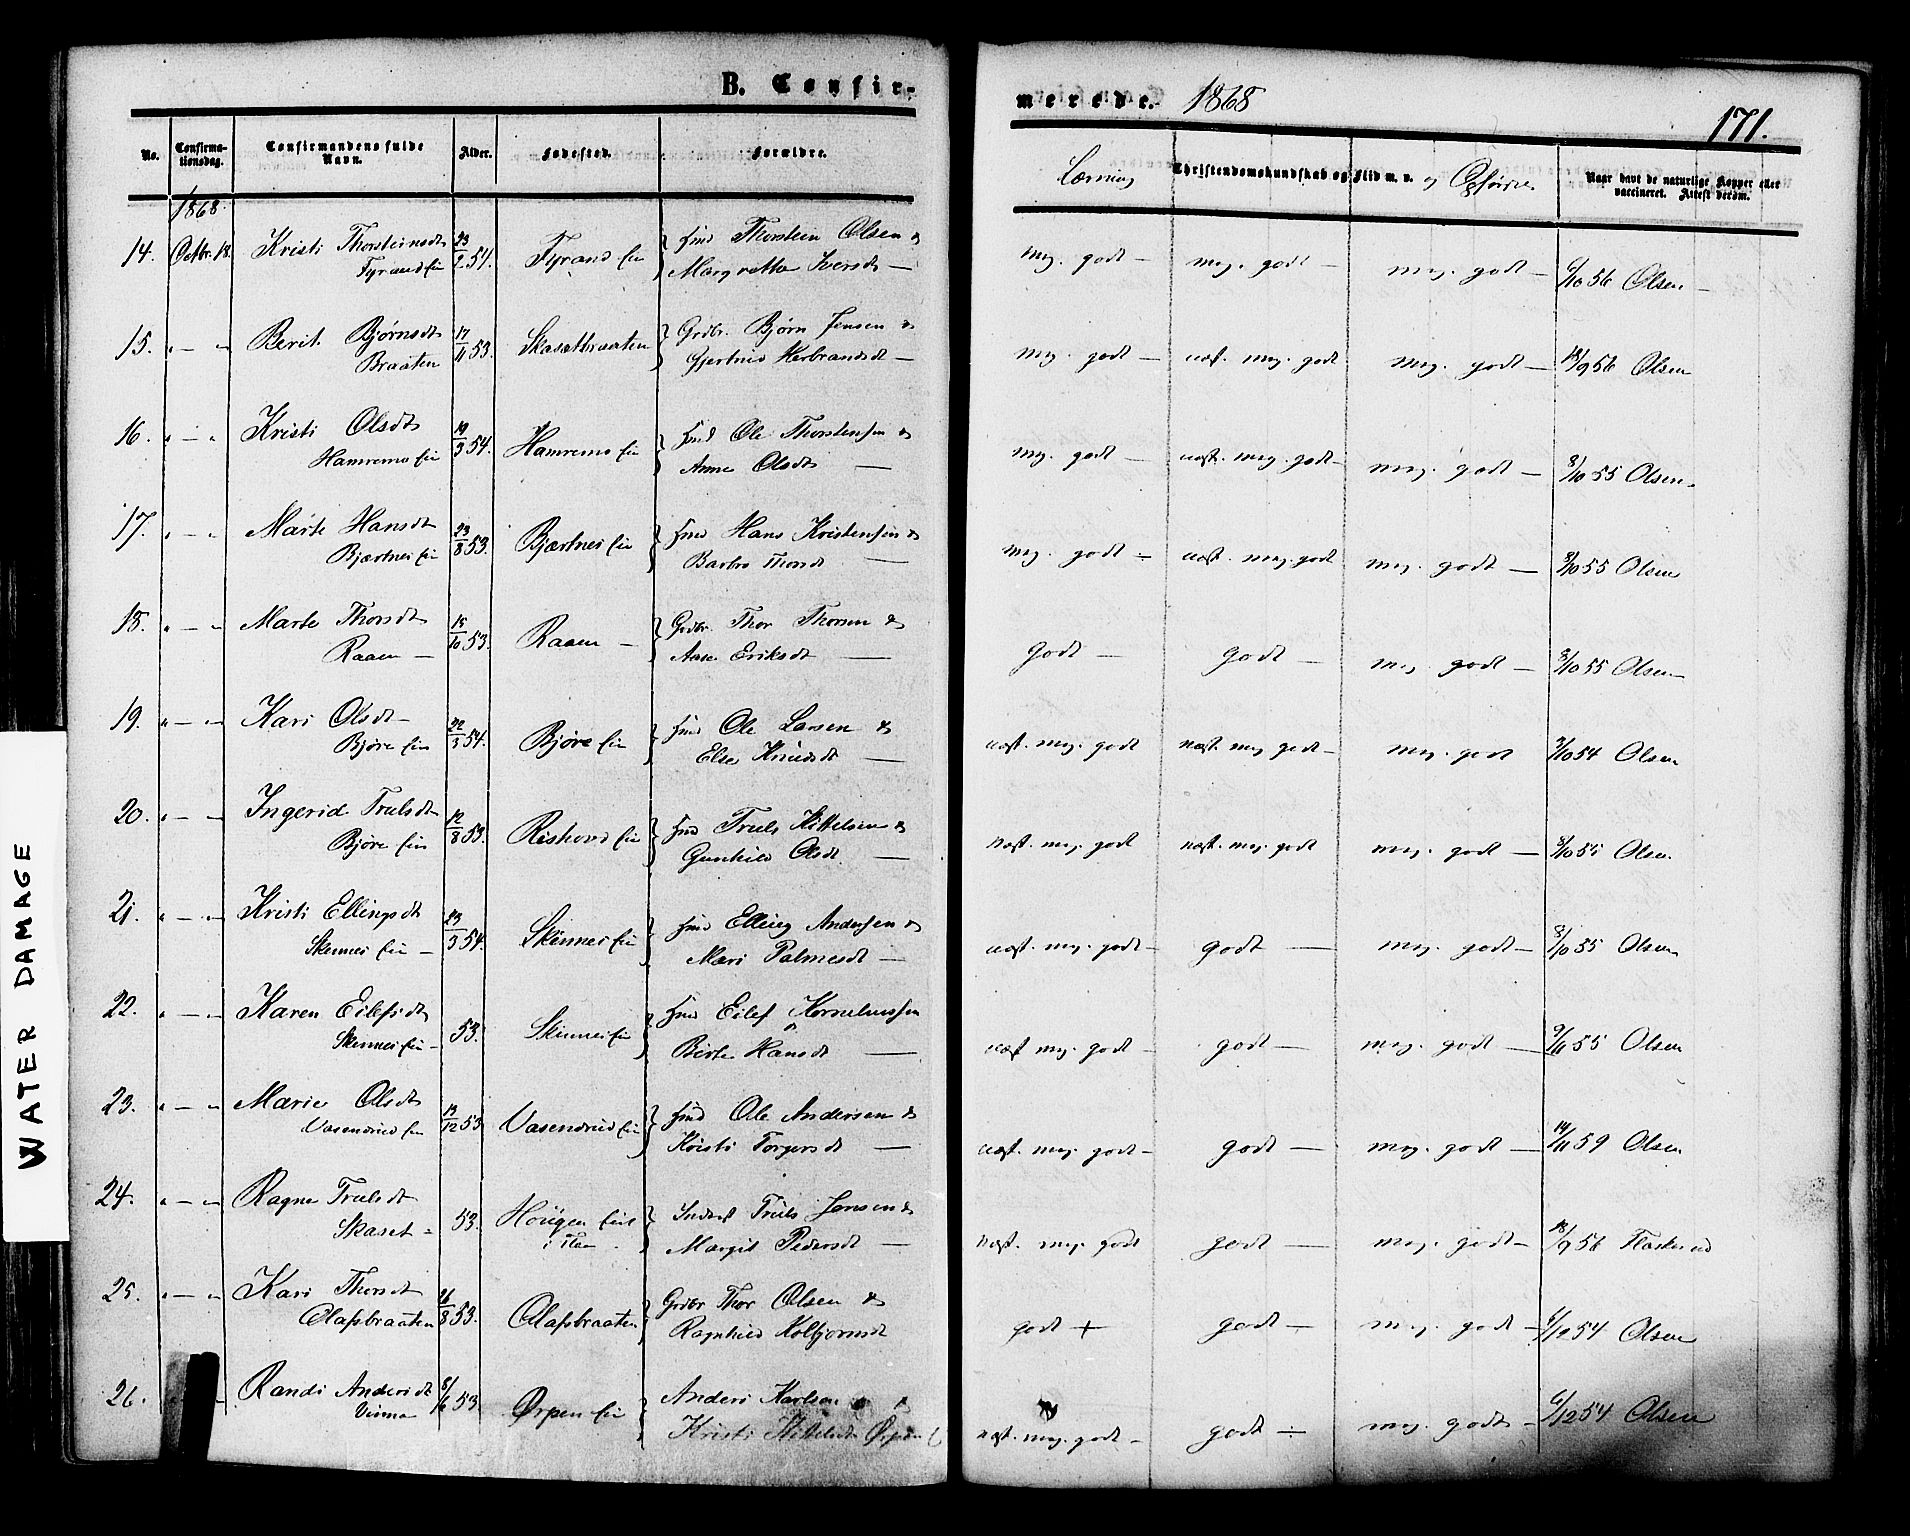 B. Confir-
merede. 1868
171.
No.
Confirma-
tionsdag.
Confirmandens fulde
Navn.
Alder.
Fødested.
Forældre.
Læsning
Christendomskundskab og Flid m. v.
og Opførsel
Naar havt de naturlige Kopper eller
vaccineret. Attest derom.
1868.
14. Octbr. 18. Kristi Thorsteinsdt 23/2 54. Tyrand ei Thorstein Olsen &
Tyrand Margrethe Iversdt —
meg. godt — meg. godt — meg. godt — 6/10 56 Olsen —
15. " — " Berit Bjørnsdt 17/11 53. Skasetbraaten Grdbr. Bjørn Jensen &
Braaten Gjertrud Herbrandsdt —
meg. godt — næst. meg. godt meg. godt — 18/9 56 Olsen
16. " — " Kristi Olsdt 19/3 54. Hamremo Ole Thorstensen &
Hamremo Anne Olsdt —
meg. godt — næst. meg. godt — meg. godt — 8/10 55 Olsen
17. " — " Marte Hansdt 23/8 53. Bjertnes Hans Kristensen &
Bjertnes Barbro Thorsdt —
meg. godt — næst. meg. godt meg. godt — 8/10 55 Olsen
18. " — " Marte Thorsdt 15/10 53. Raaen — Grdbr. Thor Thorsen &
Raaen — Aase Eriksdt —
godt — godt — meg. godt — 8/10 55 Olsen —
19. " — " Kari Olsdt — 22/3 54. Bjøre Ole Larsen &
Bjøre Else Knudsdt —
næst. meg. godt næst. meg godt — meg. godt 3/10 54 Olsen
20. " — " Ingerid Trulsdt 12/8 53. Rishovd Truls Kittelsen &
Bjøre Gunhild Olsdt —
næst. meg. godt næst. meg. godt meg. godt — 8/10 55 Olsen
21. " — " Kristi Ellingsdt 23/3 54. Skinnes Elling Andersen &
Skinnes — Mari Palmesdt —
næst. meg. godt — godt — meg. godt — 8/10 55 Olsen
22. " — " Karen Eilefsdt 53. Skinnes Eilef Korneliussen
Skinnes — & Birte Hansdt —
næst meg. godt — godt — meg. godt — 9/11 55 Olsen
23. " — " Marie Olsdt 13/12 53. Vasendrud Ole Andersen &
Vasendrud Kristi Torgersdt —
næst. meg. godt — godt — meg. godt — 14/11 59 Olsen
24. " — " Ragne Trulsdt 53. Hougen Inderst Truls Jensen &
Skaset — i Flaa Margit Pedersdt —
næst. meg. godt godt — meg. godt — 18/9 56 Flaskerud
25. " — " Kari Thorsdt 26/8 53. Olafsbraaten Grdbr Thor Olsen &
Olafsbraaten Ragnhild Kolbjornsdt
godt + godt — meg. godt — 6/12 54 Olsen
26. Randi Andersdt 8/6 53. Ørpen Anders Karlsen &
Vinna Kristi Kittelsdt Ørpen
næst. meg. godt — godt — meg. godt — 6/12 54 Olsen
WATER DAMAGE